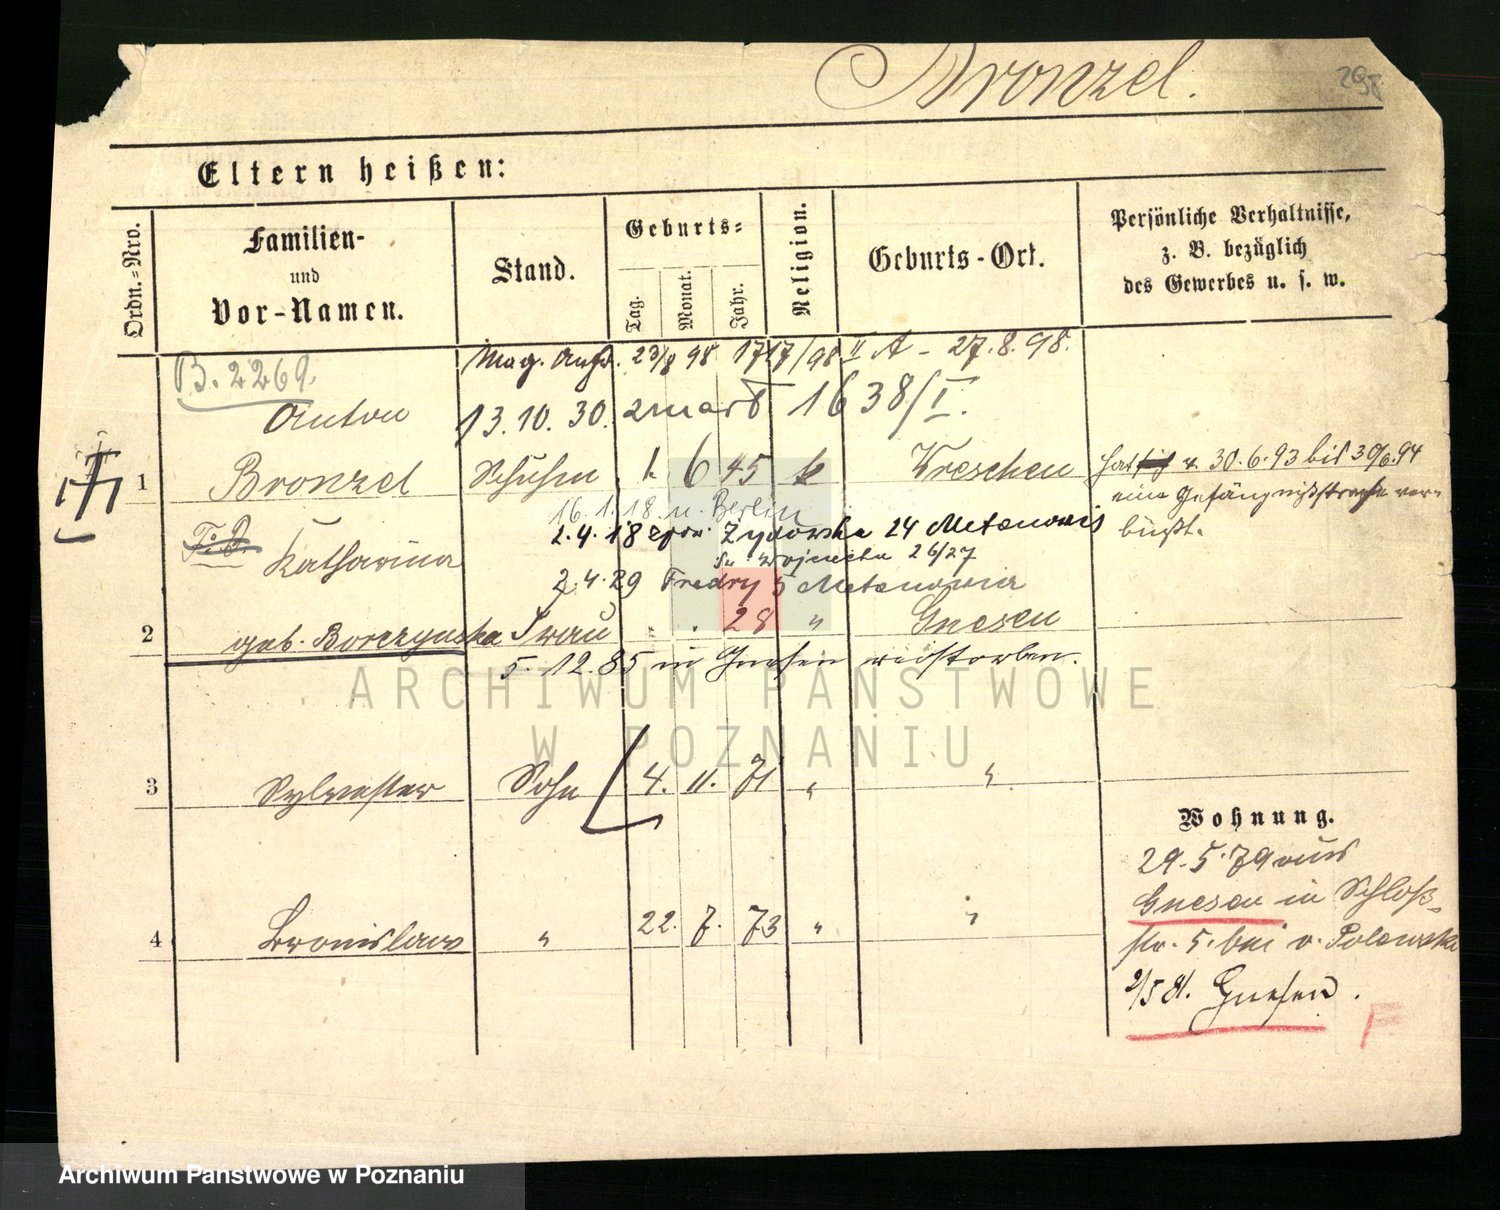 Bronzel.
298
Eltern heißen:
Ordn.=Nro.
Familien-
und
Vor-Namen.
Stand.
Geburts=
Tag.
Monat.
Jahr.
Religion.
Geburts-Ort.
Persönliche Verhältnisse,
z. B. bezüglich
des Gewerbes u. s. w.
B. 2269.
Mag. Anfr. 23/8 98 1717/98 II A - 27.8.98.
Anton 13.10.30. 1638/I.
1 Bronzel 1. 6 45 k Wreschen hat v. 30.6.93 bis 30/6.94
eine Gefängnißstrafe ver=
büßt.
16.1.18 n. Berlin
2.4.18 Zydowska 24
26/27
Katharina
2.4.29 Fredry 5
2 geb. Borczynska Frau . . 28 " Gnesen
5.12.85 in Gnesen verstorben.
3 Sylvester Sohn 4. 11. 71 " "
Wohnung.
29.5.79 aus
Gnesen in Schloß-
str. 5. bei v.
4 Bronislaw " 22. 7. 73 " "
2/5 81. Gnesen.
F
ARCHIWUM PAŃSTWOWE
W POZNANIU
Archiwum Państwowe w Poznaniu